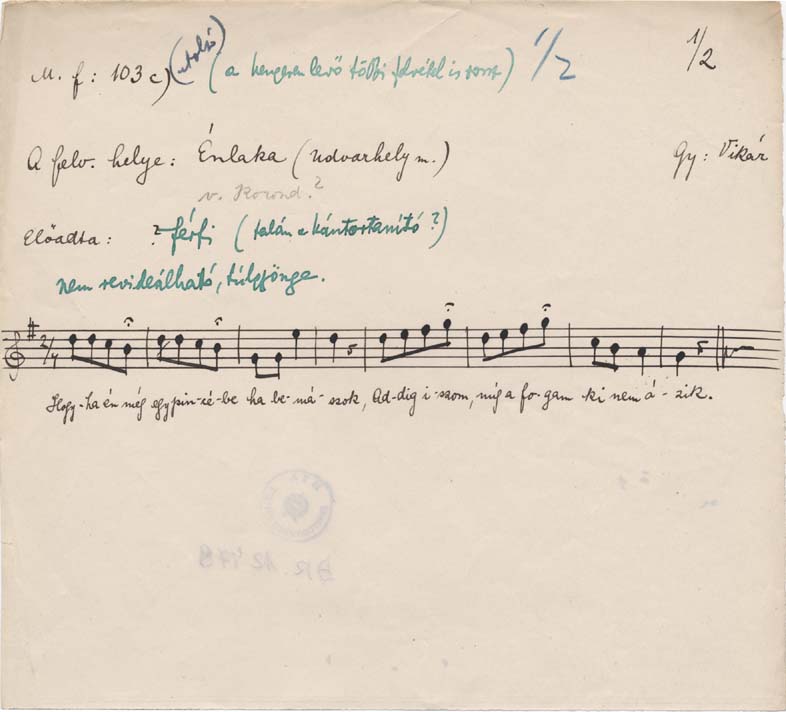 M. f: 103 c) (utolsó) (a hengeren levő többi felvétel is rossz) 1/2 1/2
A felv. helye: Énlaka (Udvarhely m.) Gy: Vikár
v. Korond?
Előadta: ? férfi (talán a kántortanító?)
nem revideálható, túlgyönge.
2/4
Hogy-ha én még egy pin-cé-be ha be-má-szok, Ad-dig i-szom, míg a fo-gam ki nem á-zik.